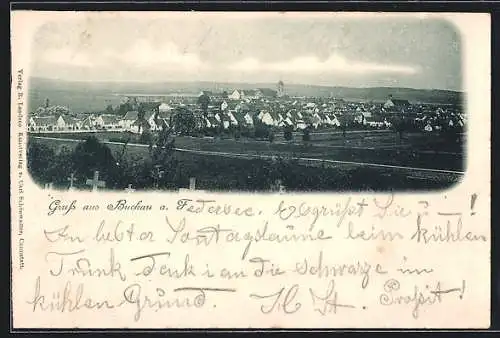 Verlag R. Landauer, Kunstverlag u. Carl Schönwalter, Cannstatt.
Gruß aus Buchau a. Federsee. Es grüßt Sie !
An liebster Sonntagslaune beim kühlen
Trunk denk i an die Schwarze im
kühlen Grund. Prosit!